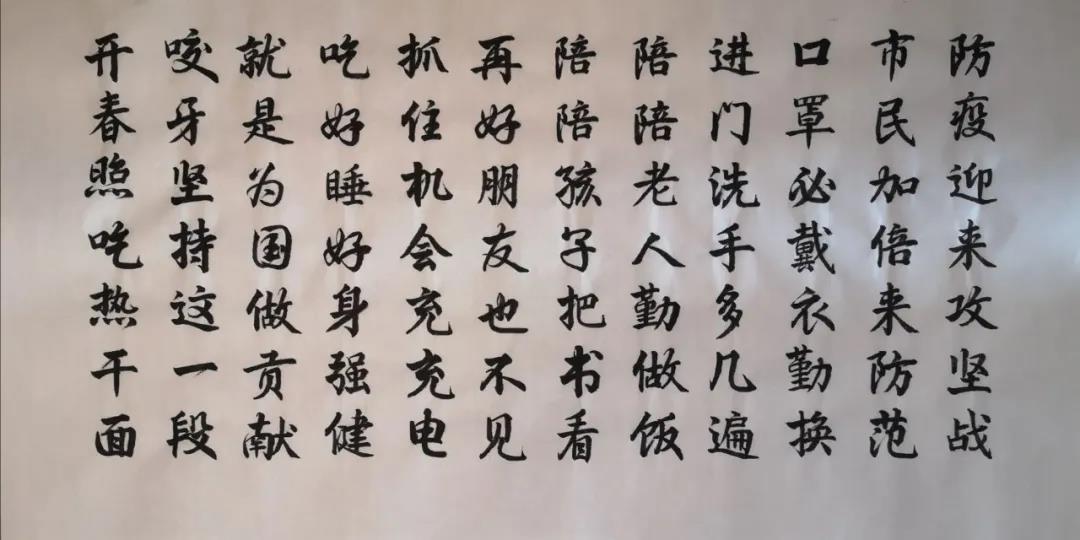 防疫迎来攻坚战
市民加倍来防范
口罩必戴衣勤换
进门洗手多几遍
陪陪老人勤做饭
陪陪孩子把书看
再好朋友也不见
抓住机会充充电
吃好睡好身强健
就是为国做贡献
咬牙坚持这一段
开春照吃热干面